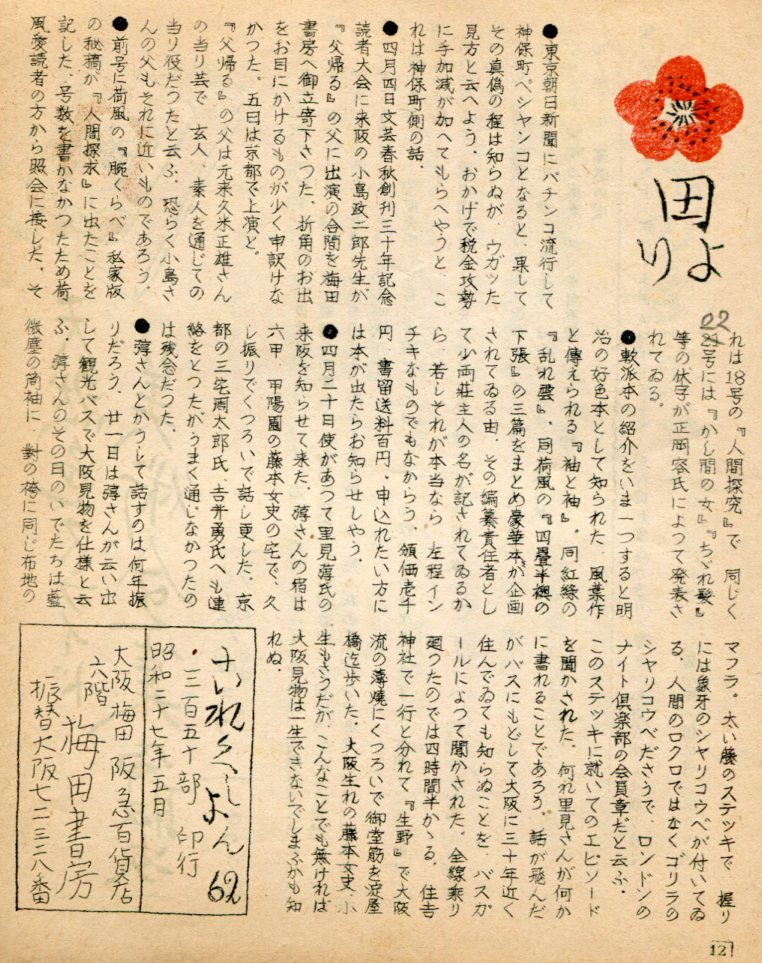 田
より
●東京朝日新聞にパチンコ流行して
神保町ペシャンコとなると、果して
その真偽の程は知らぬが、ウガッた
見方と云へよう、おかげで税金攻勢
に手加減が加へてもらへやうと、こ
れは神保町側の話。
●四月四日文芸春秋創刊三十年記念
読者大会に来阪の小島政二郎先生が
『父帰る』の父に出演の合間を梅田
書房へ御立寄下さつた、折角のお出
をお目にかけるものが少く申訳けな
かつた。五日は京都で上演と。
『父帰る』の父は元来久米正雄さん
の当り芸で 玄人、素人を通じての
当り役だつたと云ふ、恐らく小島さ
んの父もそれに近いものであろう。
●前号に荷風の『腕くらべ』私家版
の秘稿が『人間探求』に出たことを
記した、号数を書かなかつたため荷
風愛読者の方から照会に接した、そ
れは18号の『人間探究』で 同じく
22号には『かし間の女』『ちゞれ髪』
等の伏字が正岡容氏によつて発表さ
れてゐる。
●軟派本の紹介をいま一つすると明
治の好色本として知られた 風葉作
と傳えられる『袖と袖』、同紅緑の
『乱れ雲』、同荷風の『四畳半襖の
下張』の三篇をまとめ豪華本が企画
されてゐる由、その編纂責任者とし
て少雨荘主人の名が記されてゐるか
ら、若しそれが本当なら 左程イン
チキなものでもなからう、領価壱千
円 書留送料百円、申込れたい方に
は本が出たらお知らせしやう。
●四月二十日使があつて里見弴氏の
来阪を知らせて来た、弴さんの宿は
六甲 甲陽園の藤本女史の宅で、久
し振りでくつろいで話し更した、京
都の三宅周太郎氏、吉井勇氏へも連
絡をとつたがうまく通じなかつたの
は残念だつた。
●弴さんとかうして話すのは何年振
りだろう、廿一日は弴さんが云い出
して観光バスで大阪見物を仕様と云
ふ、弴さんのその日のいでたちは藍
微塵の両袖に 對の袴に同じ布地の
マフラ。太い籐のステッキで 握り
には象牙のシヤリコウベが付いてゐ
る、人間のロクロではなくゴリラの
シヤリコウベださうで、ロンドンの
ナイト倶楽部の会員章だと云ふ、
このステッキに就いてのエピソード
を聞かされた、何れ里見さんが何か
に書れることであろう。話が飛んだ
がバスにもどして大阪に三十年近く
住んでゐても知らぬことを バスガ
ールによつて聞かされた。全線乗り
廻つたのでは四時間半かゝる、住吉
神社で一行と分れて『生野』で大阪
流の薄焼にくつろいで御堂筋を淀屋
橋迄歩いた、大阪生れの藤本女史、小
生もさうだが、こんなことでも無ければ
大阪見物は一生できないでしまふかも知
れぬ
これくしよん 62
・三百五十部 印行
昭和二十七年五月
大阪梅田 阪急百貨店
六階 梅田書房
振替大阪七二三二八番
12